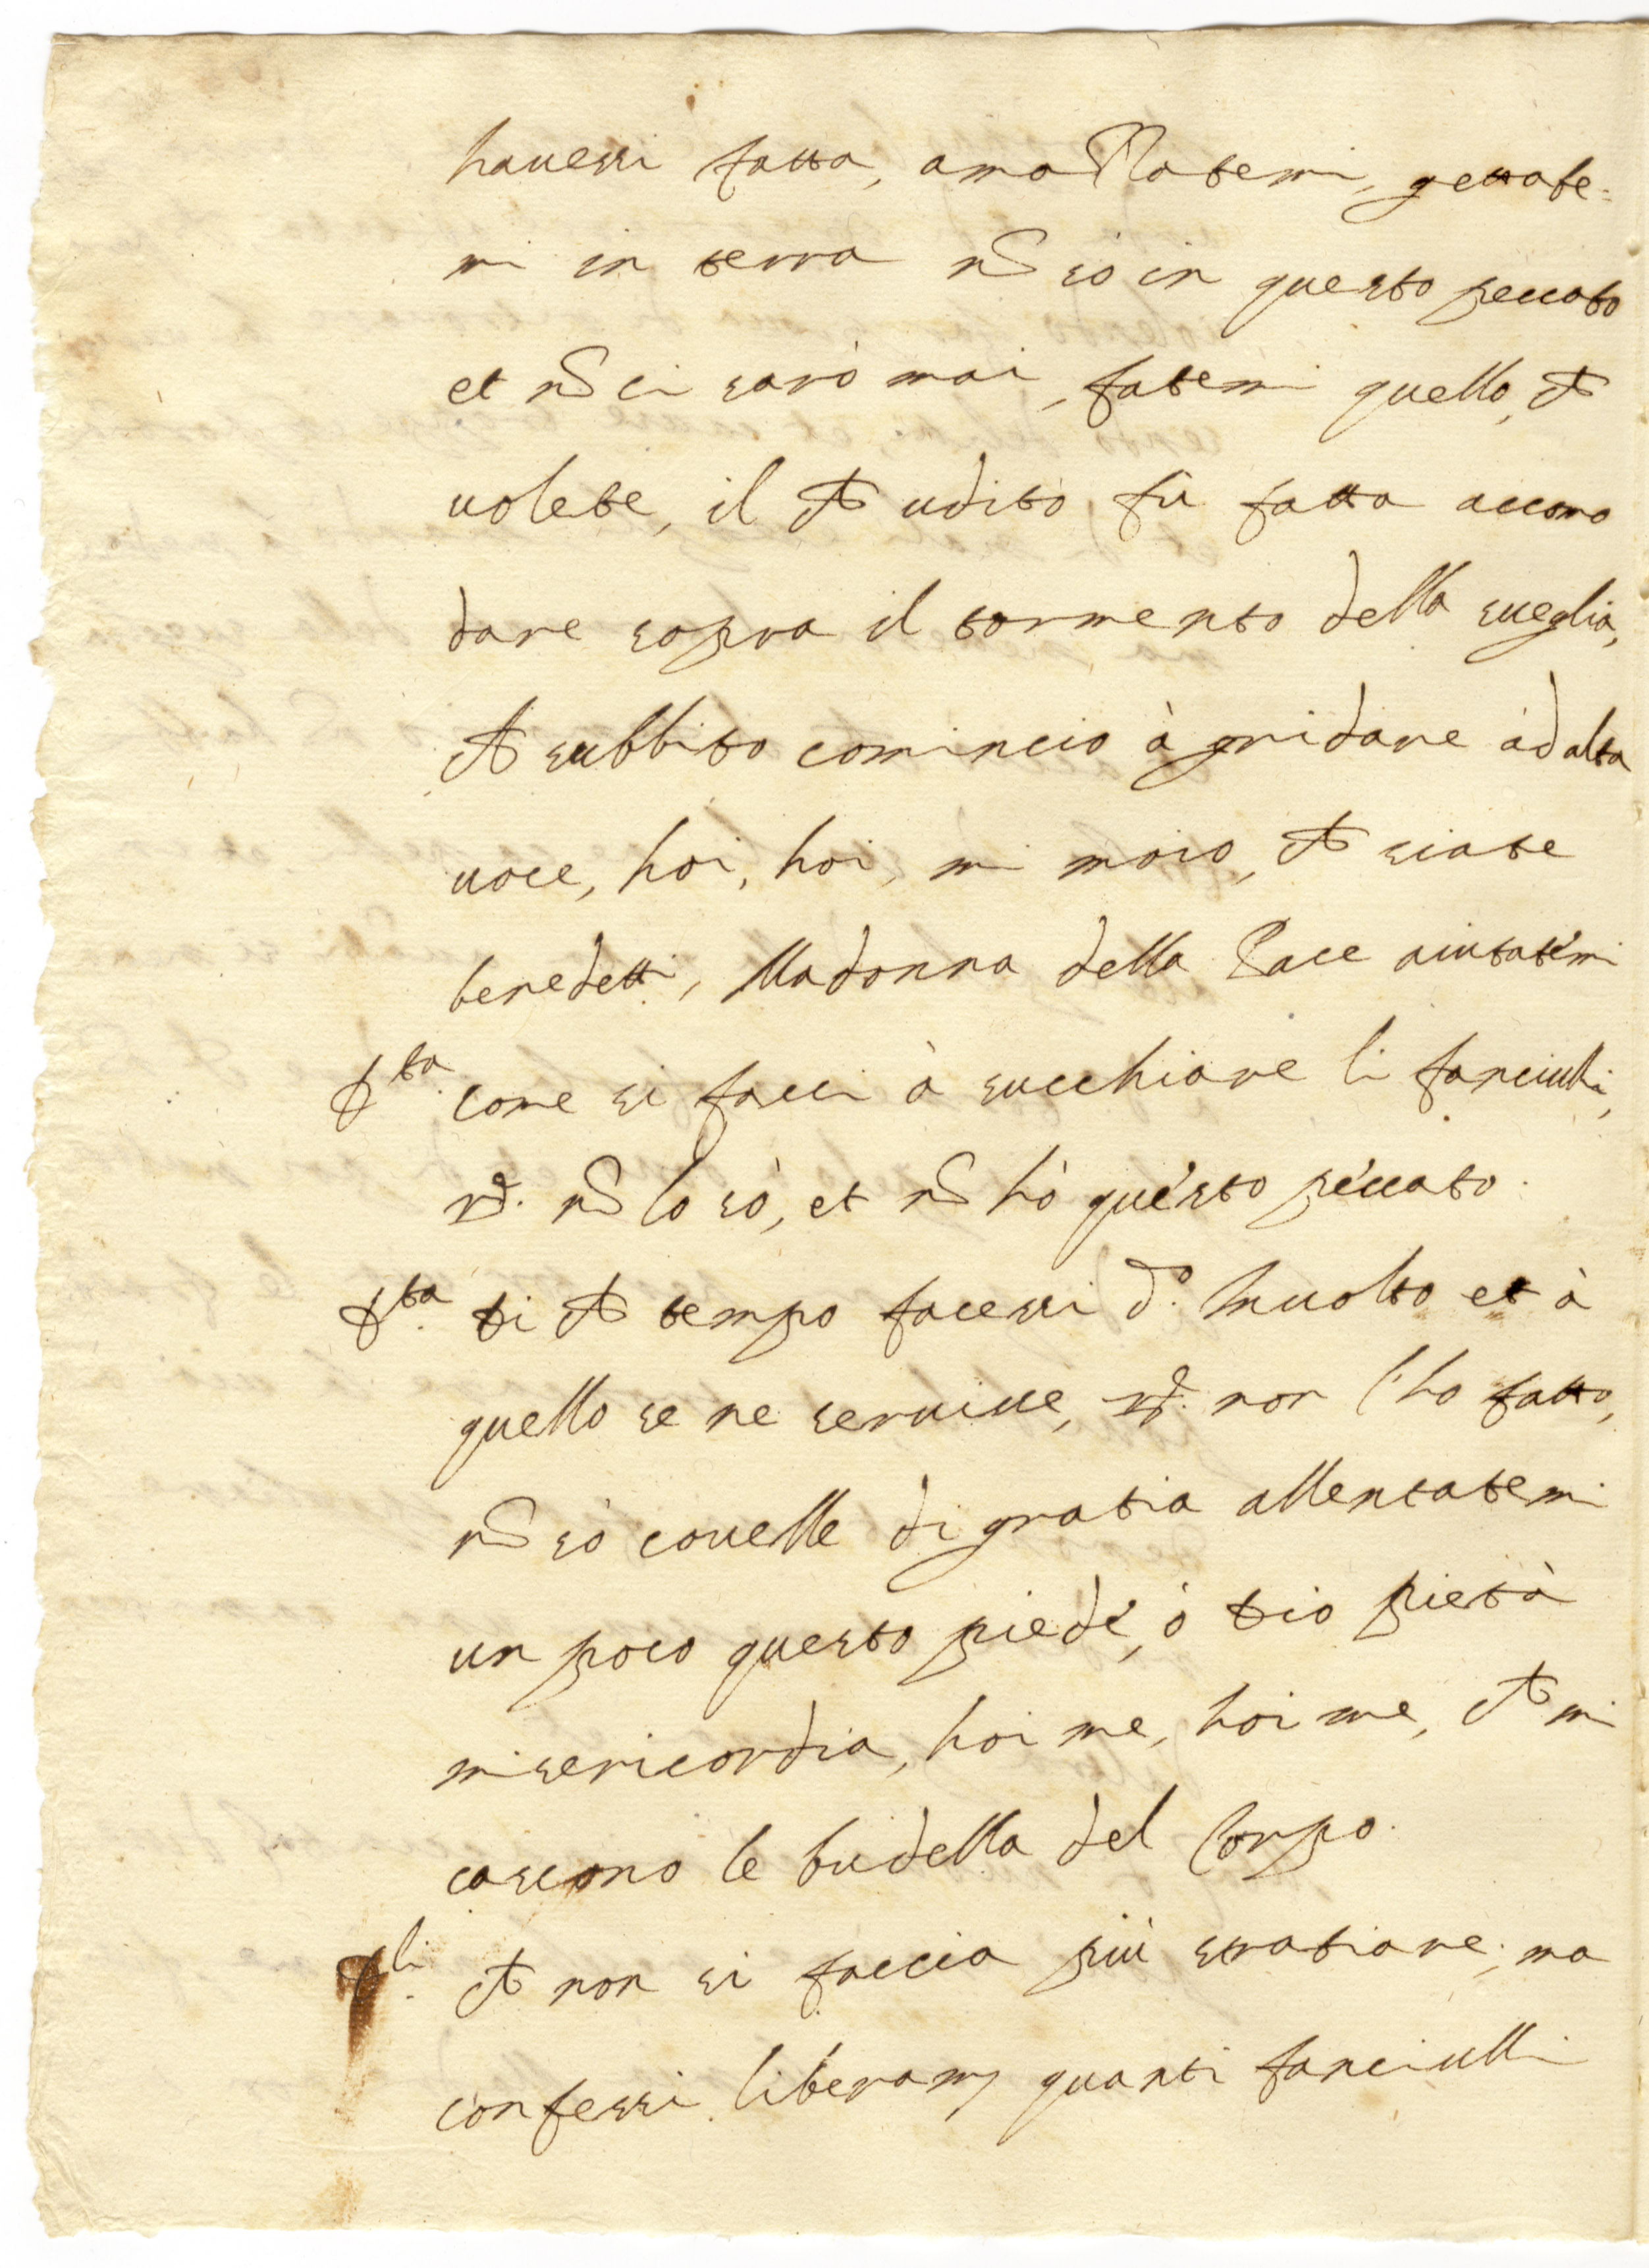 havessi fatta, amazzatemi, gettate=
mi in terra nõ sò in questo peccato
et nõ ci sarò mai, fatemi quello, ch̃
volete, il ch̃ udito, fù fatta accomo
dare sopra il tormento della sveglia,
ch̃ subbito cominciò à gridare ad alta
voce, hoi, hoi, mi moro, ch̃ siate
benedetti, Madonna della Pace aiutatemi
Dta. come si facci à succhiare li fanciulli,
R. nõ lo sò, et nõ hò questo peccato.
Dta. di ch̃ tempo facessi do. Involtо et à
quello se ne servisse, R. non l'ho fatto,
nõ sò covelle di gratia allentatemi
un poco questo piede, ò Dio pietà
misericordia, hoi me, hoi me, ch̃ mi
cascono le budella del Corpo.
ch̃ non si faccia più stratiare, ma
confessi liberam. quanti fanciulli